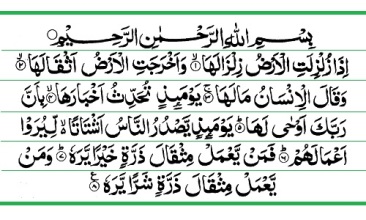 بِسْمِ اللهِ الرَّحْمٰنِ الرَّحِيْمِ
اِذَا زُلْزِلَتِ الْاَرْضُ زِلْزَالَهَا ۙ۱ وَاَخْرَجَتِ الْاَرْضُ اَثْقَالَهَا ۙ۲
وَقَالَ الْاِنْسَانُ مَا لَهَا ۚ۳ يَوْمَئِذٍ تُحَدِّثُ اَخْبَارَهَا ۙ۴ بِاَنَّ
رَبَّكَ اَوْحٰى لَهَا ؕ۵ يَوْمَئِذٍ يَّصْدُرُ النَّاسُ اَشْتَاتًا ۙ۬ لِّيُرَوْا
اَعْمَالَهُمْ ؕ۶ فَمَنْ يَّعْمَلْ مِثْقَالَ ذَرَّةٍ خَيْرًا يَّرَهٗ ؕ۷ وَمَنْ
يَّعْمَلْ مِثْقَالَ ذَرَّةٍ شَرًّا يَّرَهٗ ۸